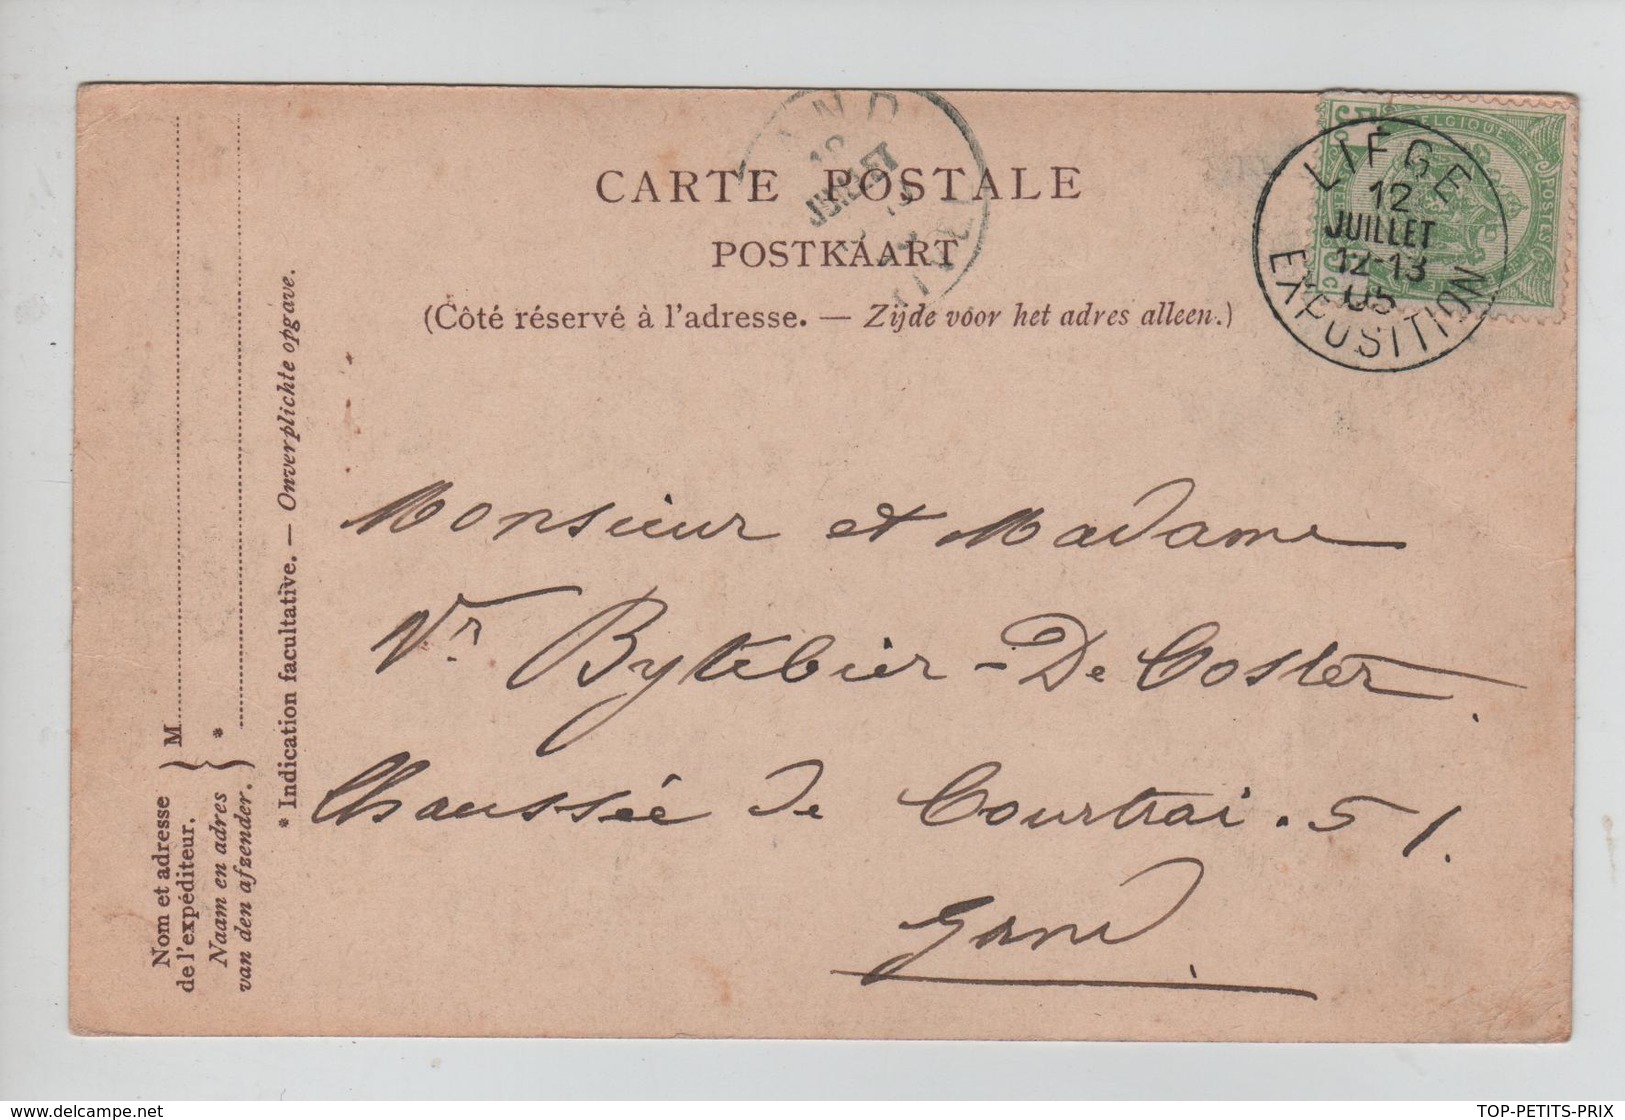 CARTE POSTALE
POSTKAART
(Côté réservé à l'adresse. — Zijde voor het adres alleen.)
LIÉGE
12
JUILLET
12-13
05
EXPOSITION
BELGIQUE
POSTES
JUILLET
Monsieur et Madame
Vr Bytebier - De Coster.
Chaussée de Courtrai. 51.
Gand.
Nom et adresse
de l'expéditeur.
Naam en adres
van den afzender.
M
*
* Indication facultative. — Onverplichte opgave.
delcampe.net
TOP-PETITS-PRIX